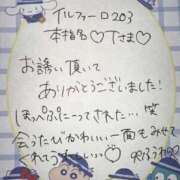 イルフィーロ203
本指名♡Tさま♡
お誘い頂いて
ありがとうございました!
ほっぺぷにーってされた…笑
会うたびかわいい一面もみせて
くれてうれしいっ♡